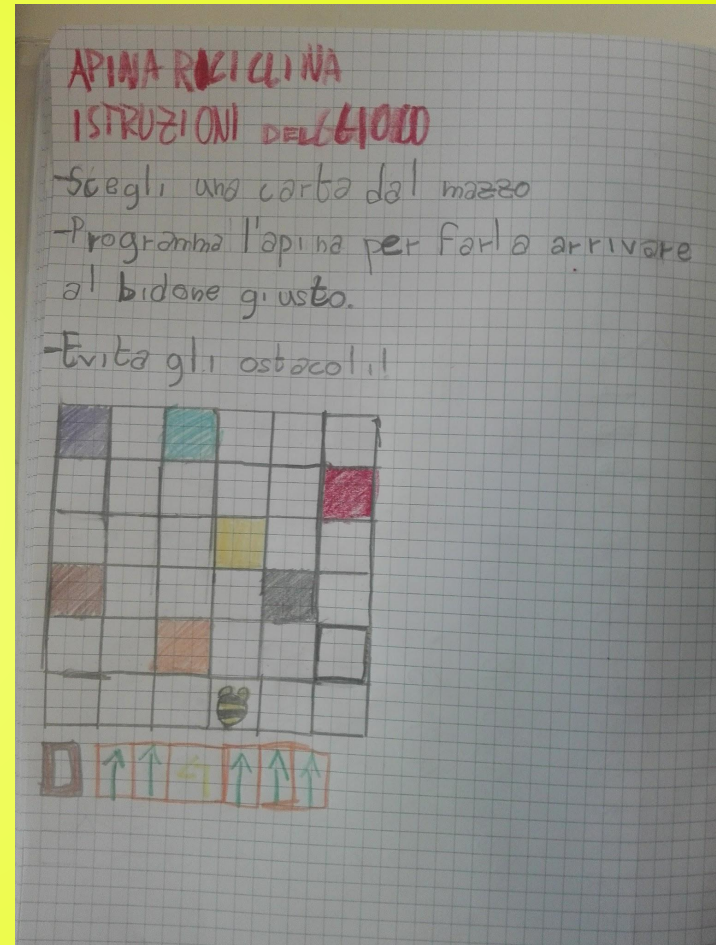 APINA RICICLINA
ISTRUZIONI DEL GIOCO
-Scegli una carta dal mazzo
-Programma l'apina per farla arrivare
al bidone giusto.
-Evita gli ostacoli!